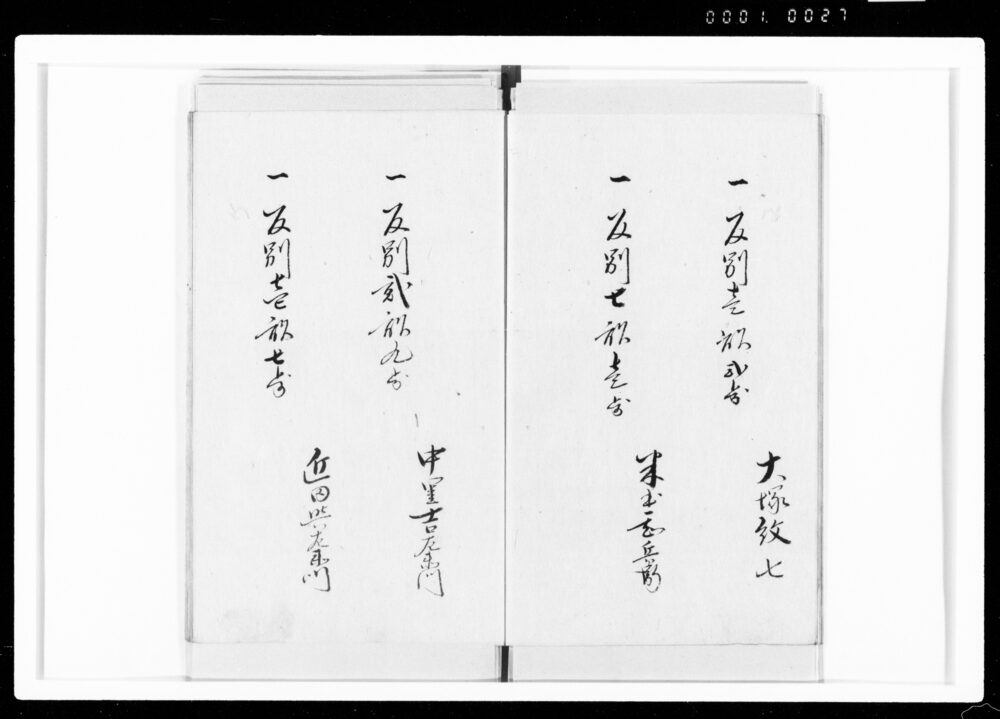 0001. 0027
一 反別壱畝弐歩
大塚紋七
一 反別七畝壱歩
兵衛
一 反別弐畝九歩
中里吉左衛門
一 反別壱畝七歩
近田与左衛門